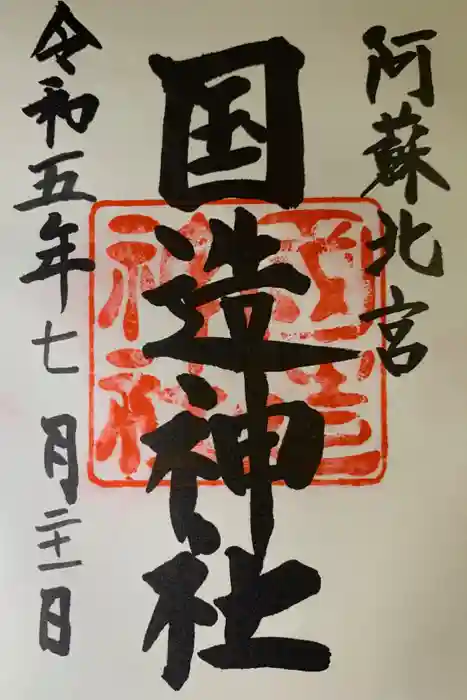 阿蘇北宮
国造神社
令和五年七月二十一日
国造
神社